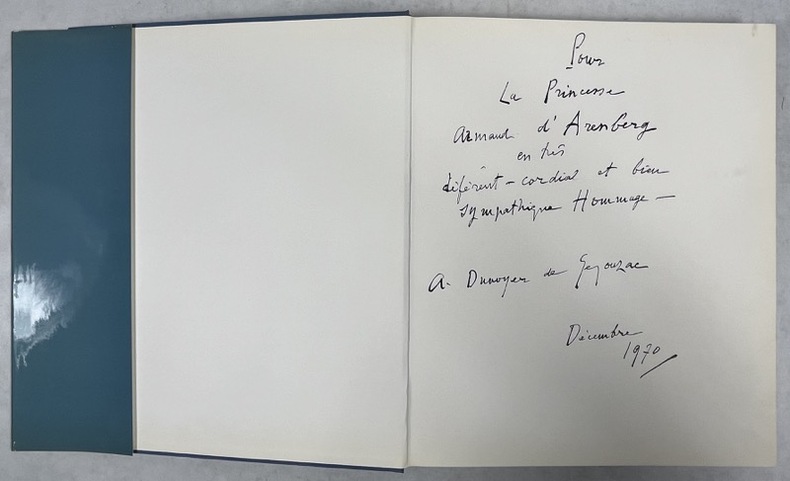 Pour
La Princesse
Armand d'Arenberg
en très
déférent - cordial et bien
sympathique Hommage —
A. Dunoyer de Segonzac
Décembre
1970